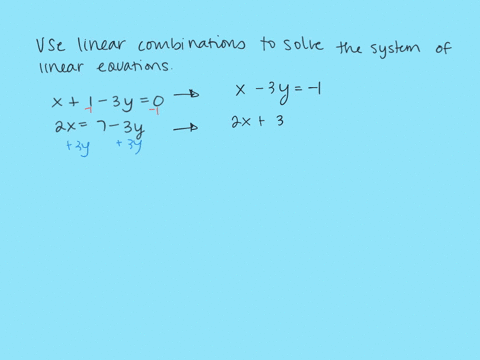 Use linear combinations to solve the system of
linear equations.
x + 1 - 3y = 0 → x - 3y = -1
-1 -1
2x = 7 - 3y → 2x + 3
+3y +3y